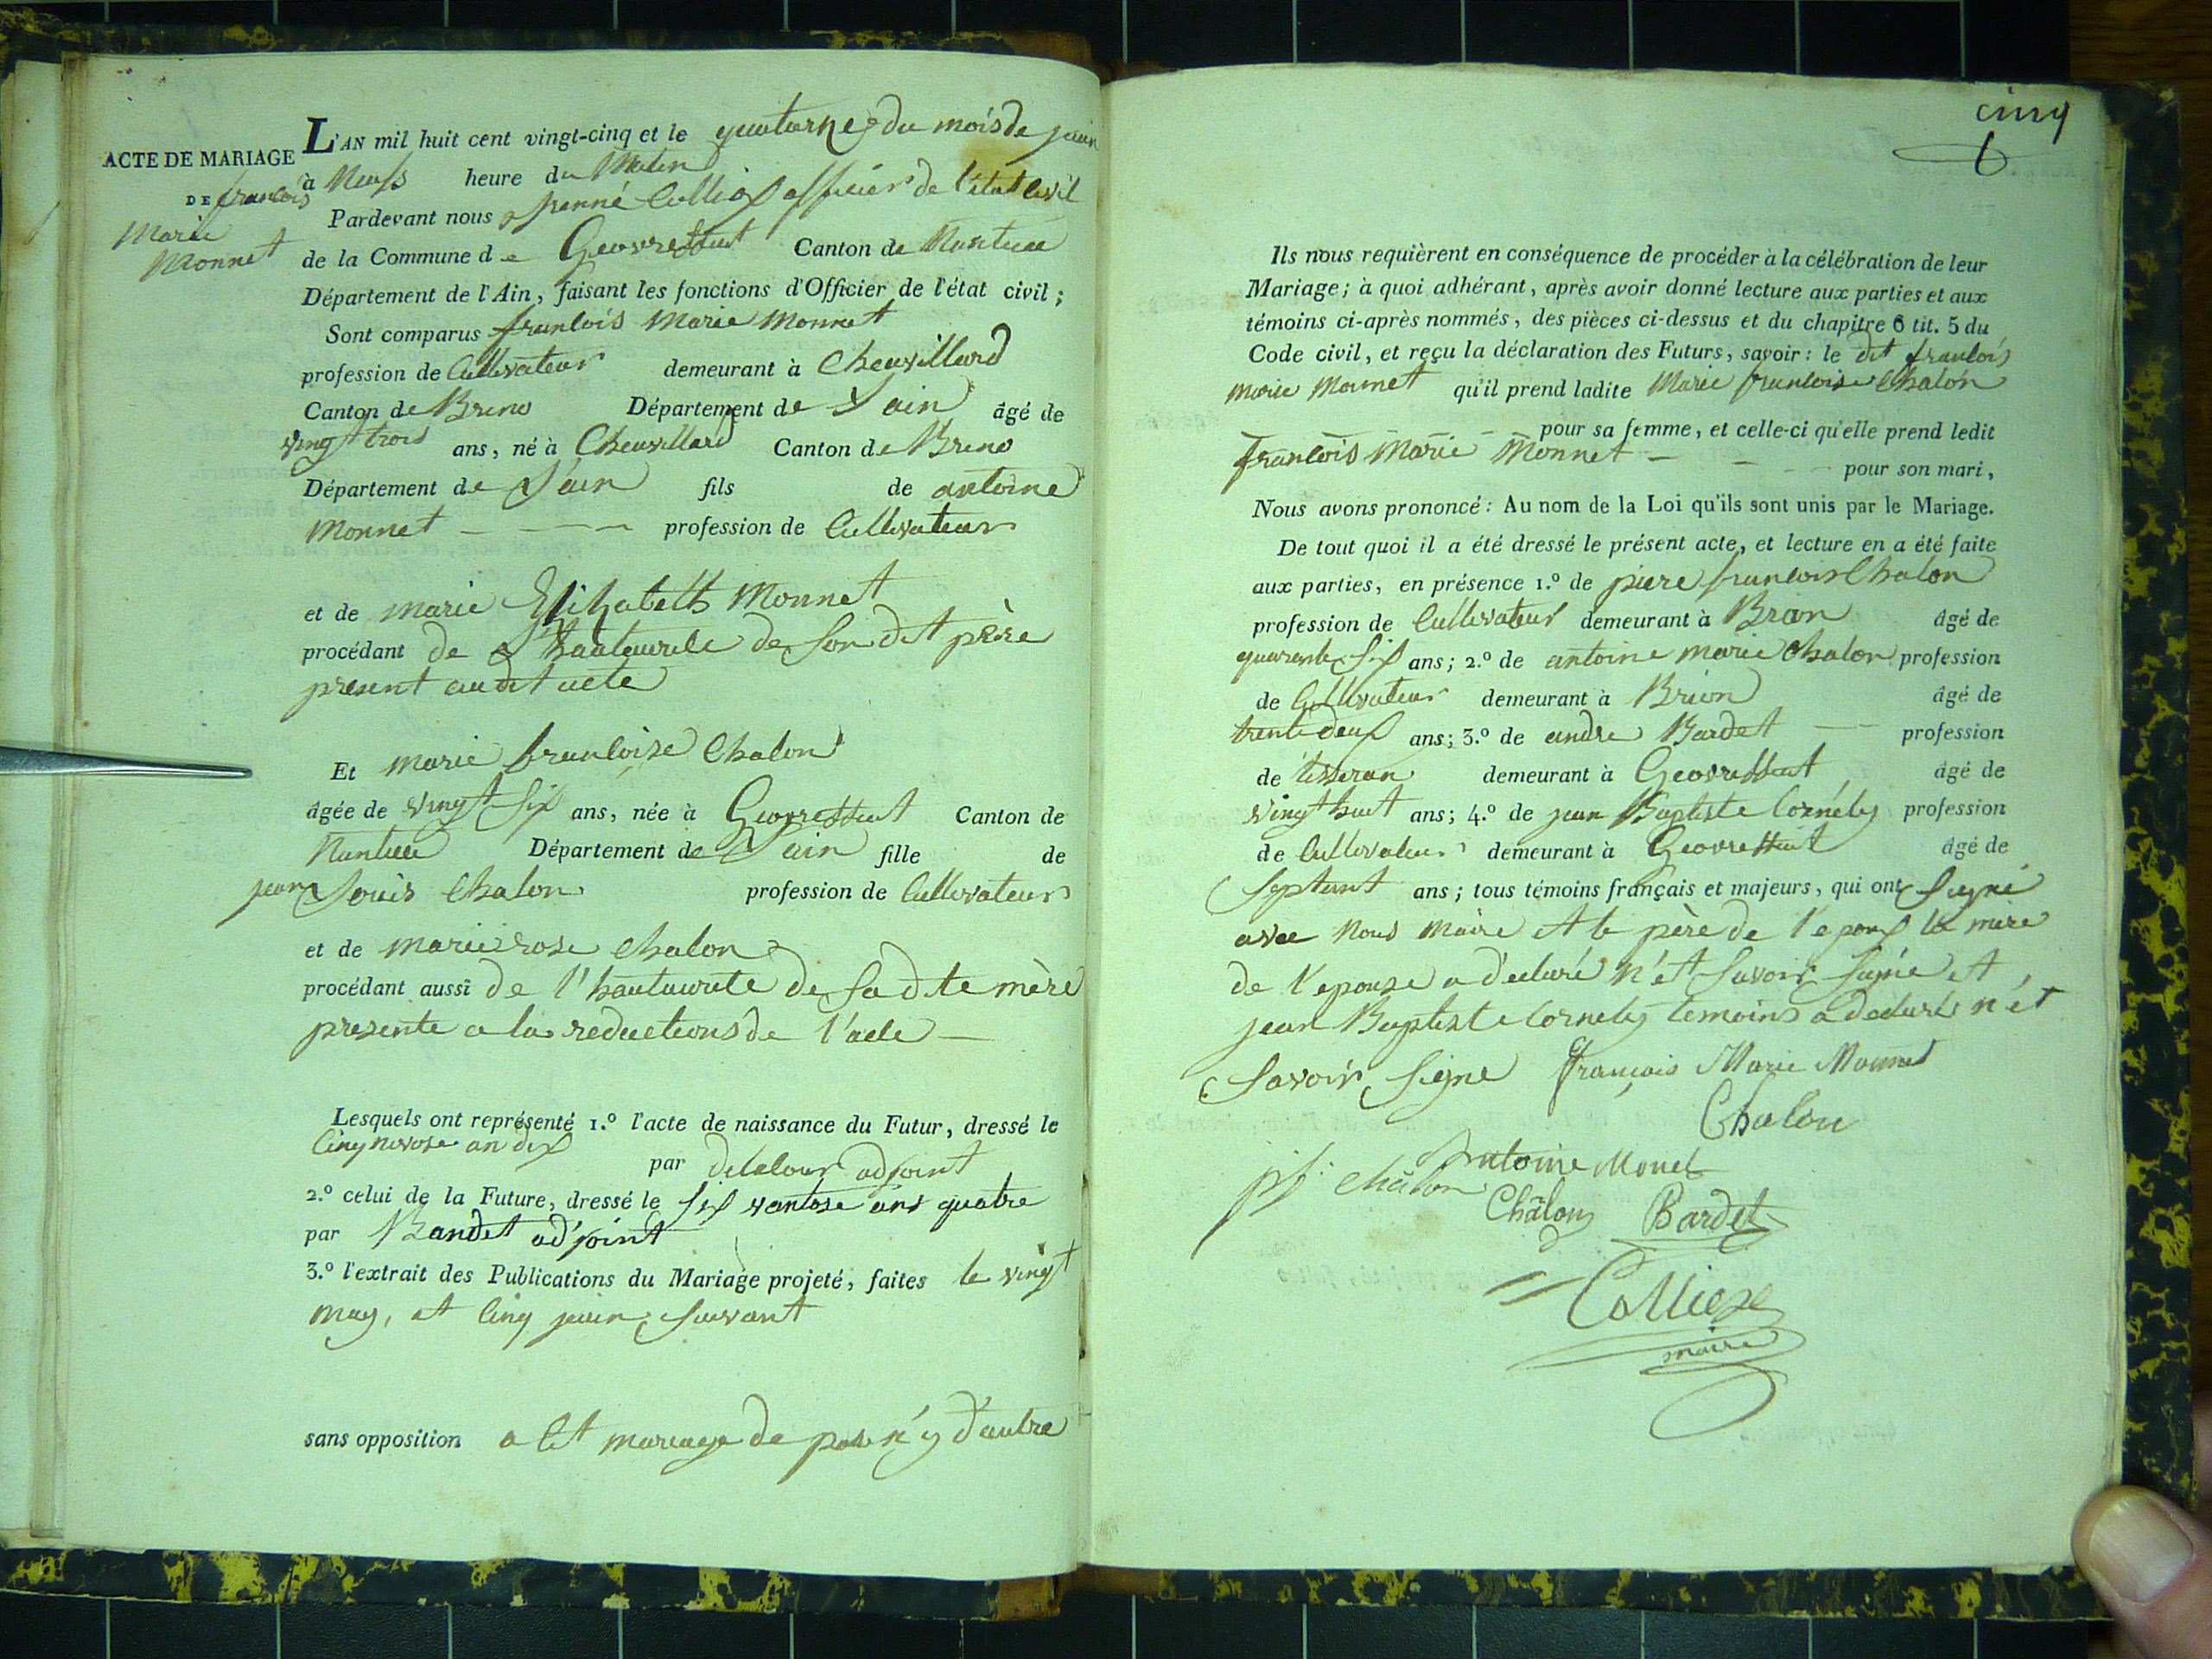 L'AN mil huit cent vingt-cinq et le quatorze du mois de juin
ACTE DE MARIAGE
à Neufs heure du Matin
DE francois
Marie
Monnet
Pardevant nous Colliox officier de l'état Civil
de la Commune de Geovressiat Canton de Nantua
Département de l'Ain, faisant les fonctions d'Officier de l'état civil ;
Sont comparus francois Marie Monnet
profession de Cultivateur demeurant à Chevillard
Canton de Breno Département de L'ain âgé de
vingt trois ans, né à Chevillard Canton de Breno
Département de L'ain fils de antoine
Monnet - - - - profession de Cultivateur
et de marie Elizabeth Monnet
procédant de de Son dit père
present au dit acte
Et marie francoize Chalon
âgée de vingt six ans, née à Geovressiat Canton de
Nantua Département de L'ain fille de
jean Louis Chalon profession de Cultivateur
et de marie rose chalon
procédant aussi de l' de Sa dite mère
presente a la redactions de l'acte -
Lesquels ont représenté 1.º l'acte de naissance du Futur, dressé le
Cinq nivose an dix
par adjoint
2.º celui de la Future, dressé le six vantose ans quatre
par adjoint
3.º l'extrait des Publications du Mariage projeté, faites le vingt
may, et Cinq juin Suivant
sans opposition a Cet mariage de part n'y d'autre
cinq
6
Ils nous requièrent en conséquence de procéder à la célébration de leur
Mariage; à quoi adhérant, après avoir donné lecture aux parties et aux
témoins ci-après nommés, des pièces ci-dessus et du chapitre 6 tit. 5 du
Code civil, et reçu la déclaration des Futurs, savoir : le dit francois
marie Monnet qu'il prend ladite Marie francoise Chalon
pour sa femme, et celle-ci qu'elle prend ledit
francois Marie Monnet - - - pour son mari,
Nous avons prononcé : Au nom de la Loi qu'ils sont unis par le Mariage.
De tout quoi il a été dressé le présent acte, et lecture en a été faite
aux parties, en présence 1.º de piere francois Chalon
profession de Cultivateur demeurant à Brion âgé de
quarente six ans; 2.º de antoine marie Chalon profession
de Cultivateur demeurant à Brion âgé de
trente deux ans; 3.º de andre Bardet - profession
de tisseran demeurant à Geovressiat âgé de
vingt huit ans; 4.º de jean Baptiste Cornély profession
de Cultivateur demeurant à Geovressiat âgé de
Septant ans; tous témoins français et majeurs, qui ont Signé
avec Nous Maire et le père de l'epoux la mère
de l'epouse a déclaré n'ét Savoir Signé et
jean Baptiste Cornely temoins a declaré n'ét
Savoir Signe françois Marie Monnet
Chalon
Antoine Monet
pf. Châlon
Châlon Bardet
Colliex
maire